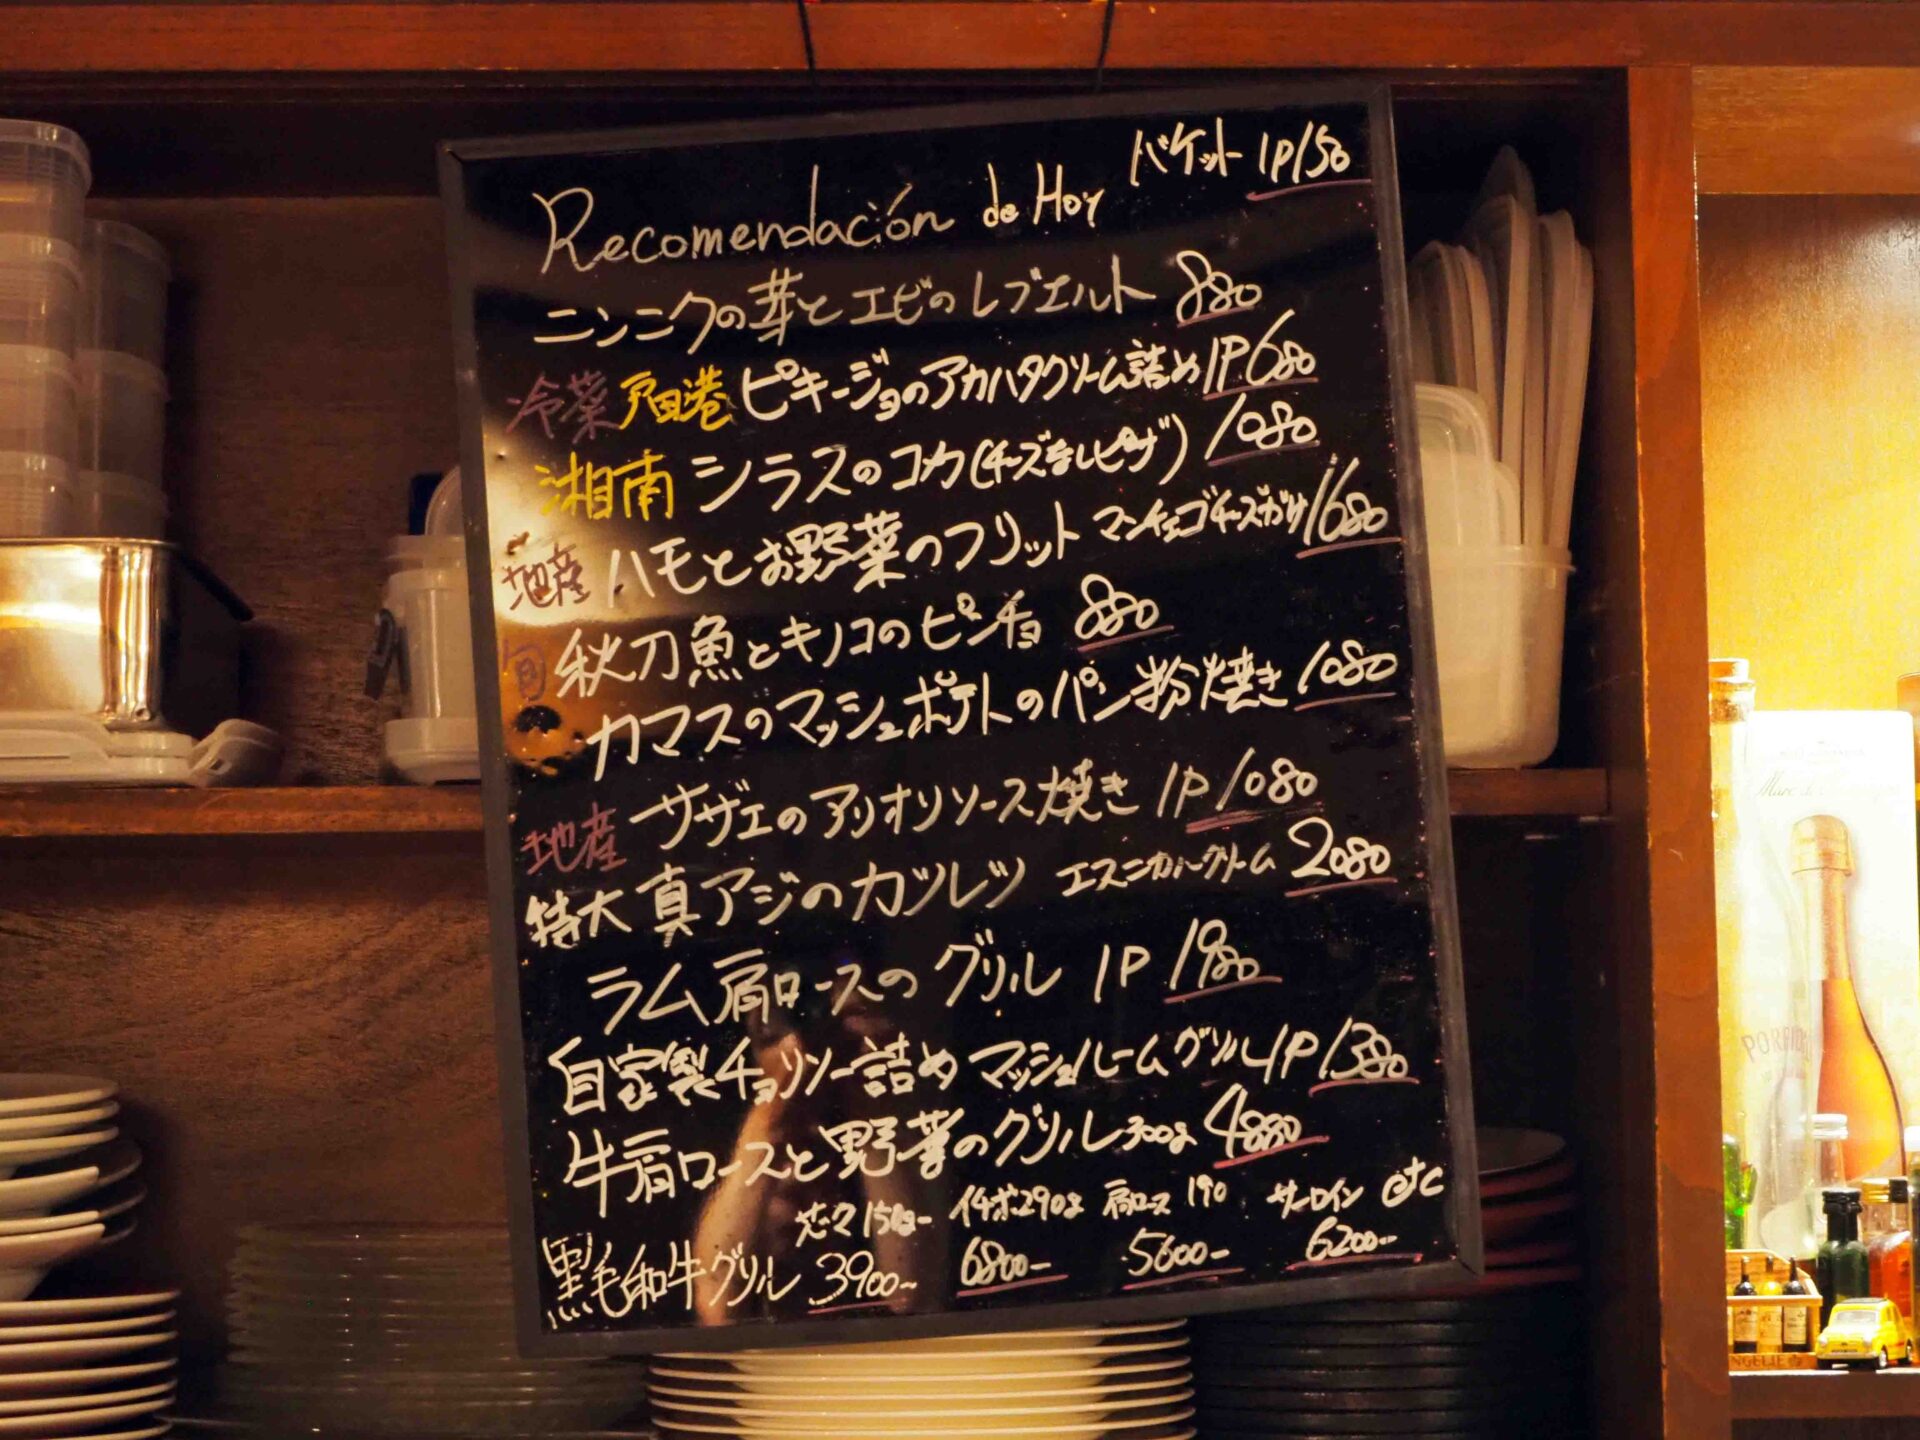 Recomendación de Hoy バケット 1P150
ニンニクの芽とエビのレブエルト 880
冷菜 戸田港 ピキージョのアカハタクリーム詰め 1P 680
湘南 シラスのコカ(チーズなしピザ) 1080
地産 ハモとお野菜のフリット マンチェゴチーズがけ 1680
旬 秋刀魚とキノコのピンチョ 880
カマスのマッシュポテトのパン粉焼き 1080
地産 サザエのアリオリソース焼き 1P 1080
特大 真アジのカツレツ エスニカルクリーム 2080
ラム肩ロースのグリル 1P 1980
自家製チョリソー詰めマッシュルームグリル 1P 1380
牛肩ロースと野菜のグリル 300g 4880
150g- イチボ 290g 肩ロース 190 サーロイン etc
黒毛和牛グリル 3900- 6800- 5600- 6200-
NGELIE